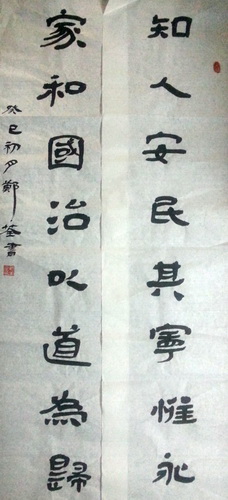 知人安民其寧惟永
家和國治以道為歸
癸巳初夕鄭荃書